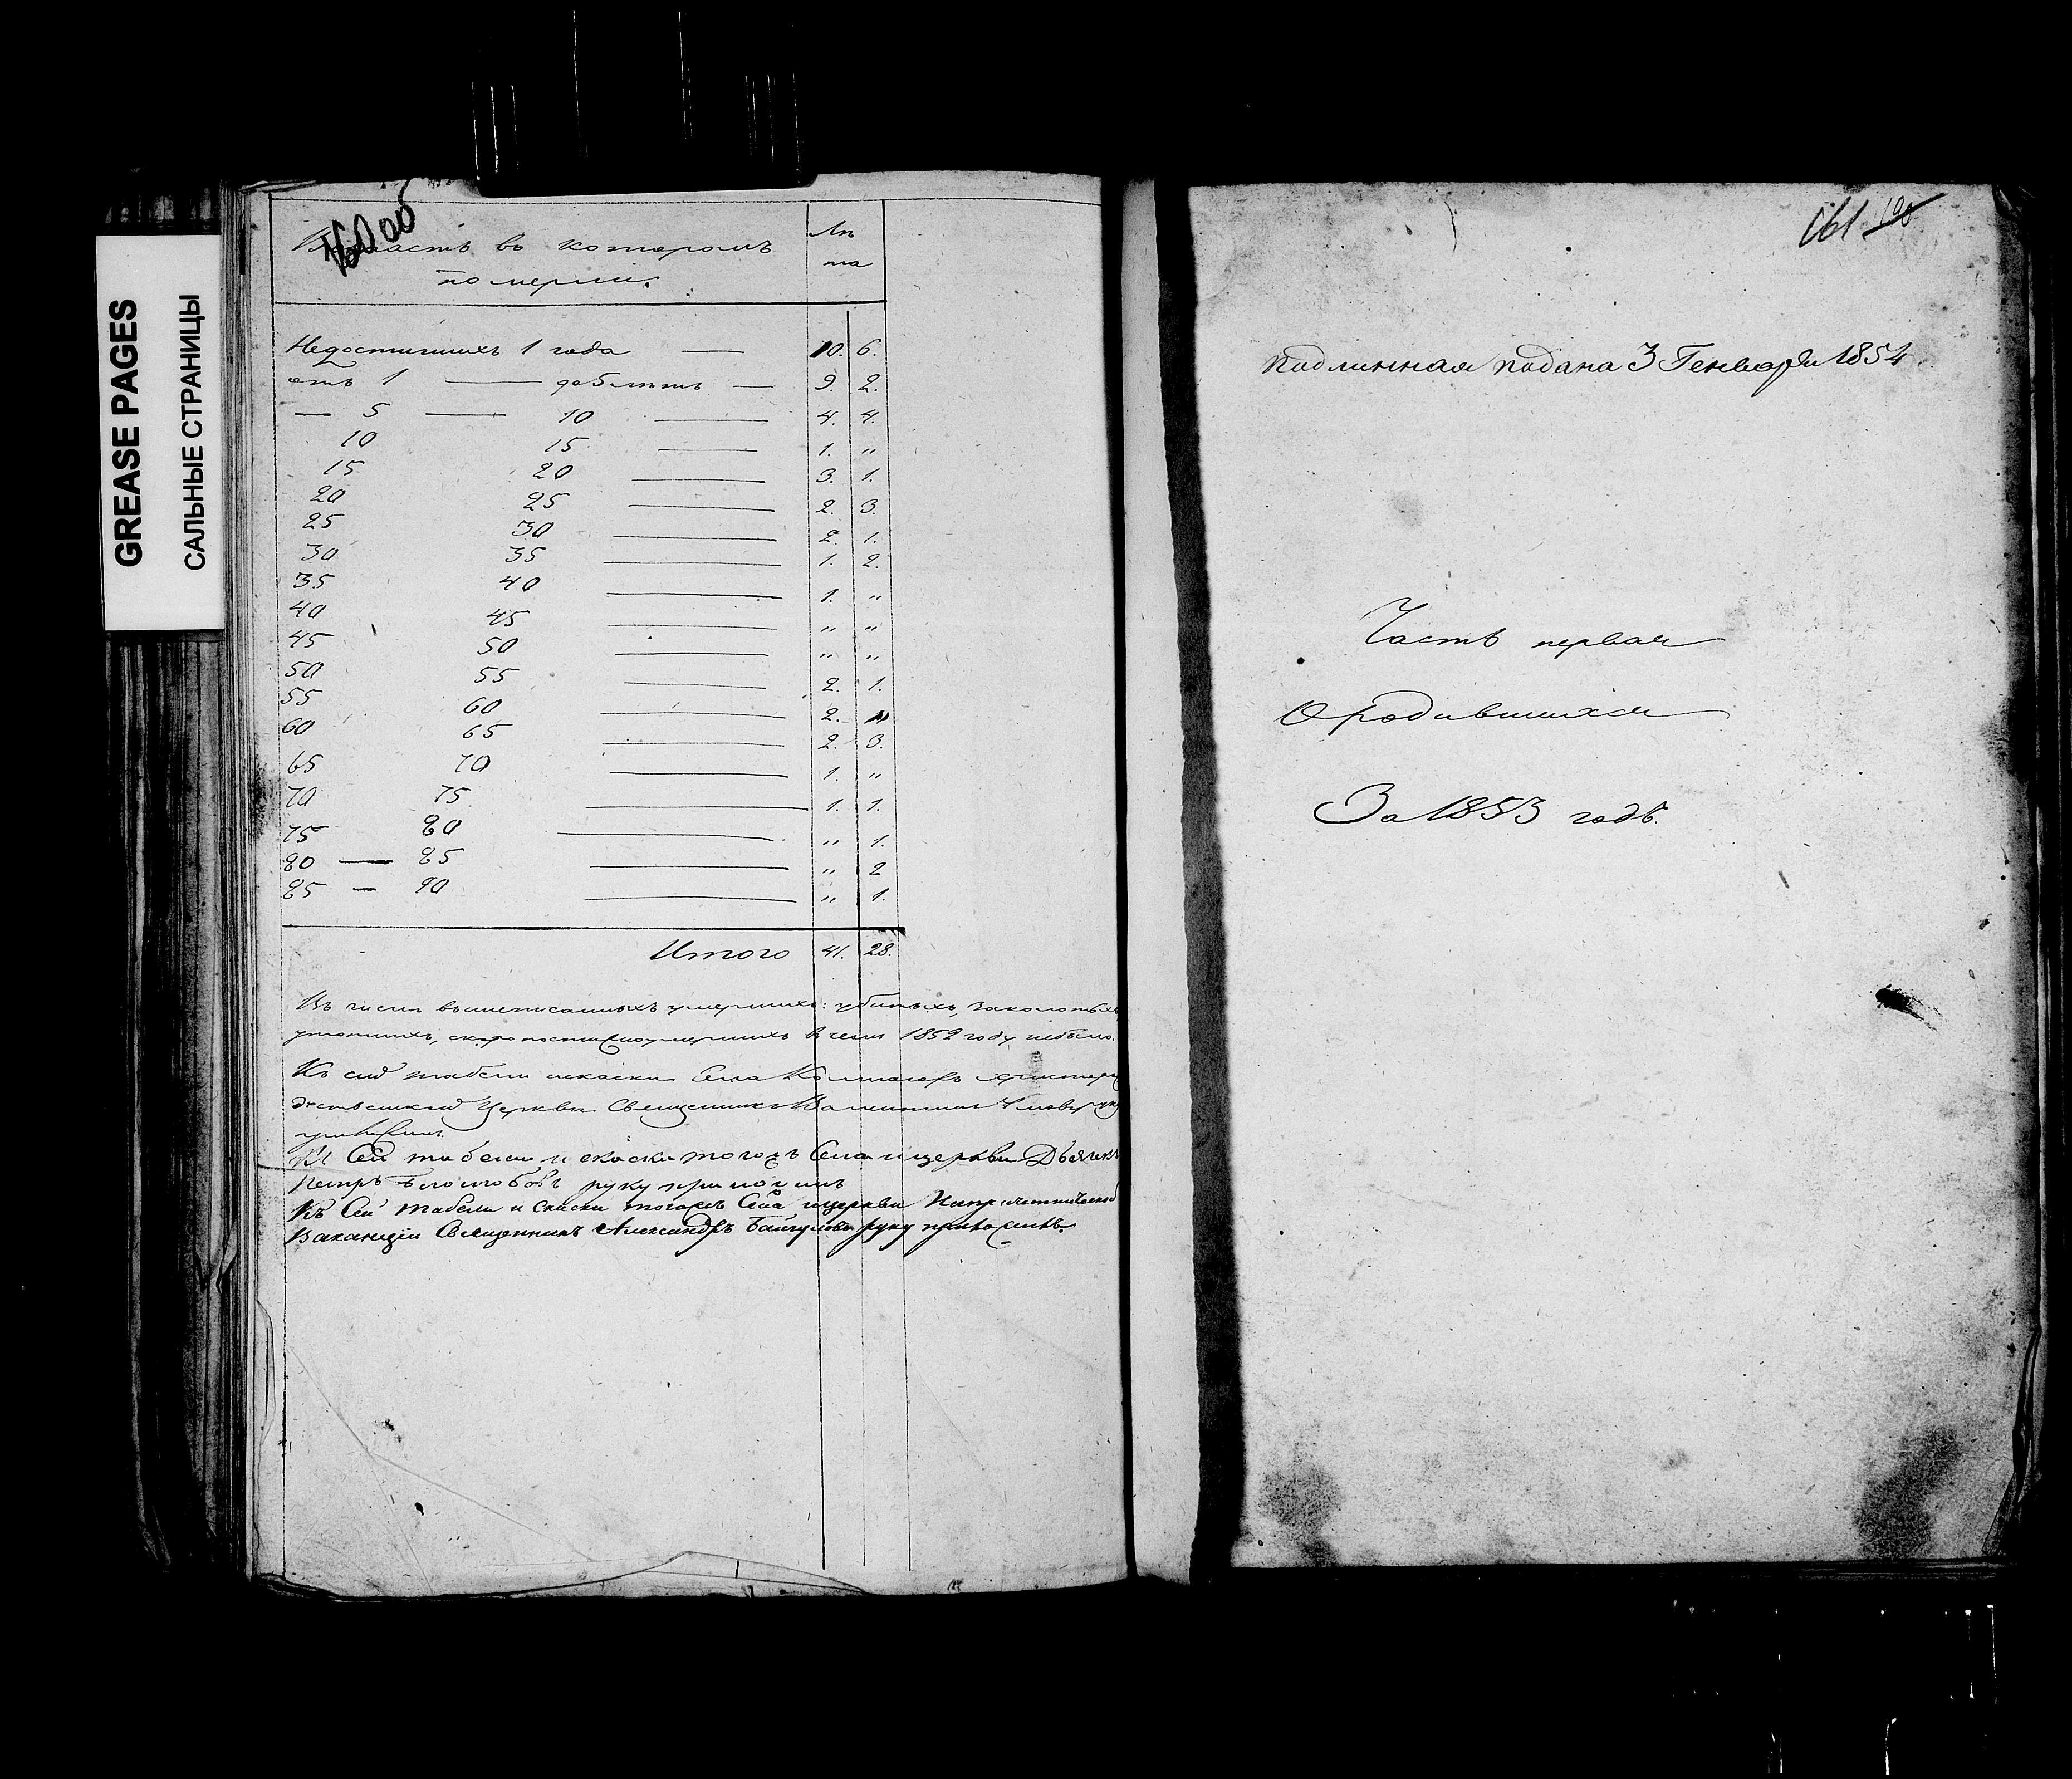 GREASE PAGES
САЛЬНЫЕ СТРАНИЦЫ
160 об
Возрастъ въ которомъ Лѣ
померли. та
Недостигшихъ 1 года — 10. 6.
отъ 1 — до 5 лѣтъ — 9. 2.
— 5 — 10 — 4. 4.
10 15 — 1. "
15 20 — 3. 1.
20 25 — 2. 3.
25 30 — 2. 1.
30 35 — 1. 2.
35 40 — 1. "
40 45 — " "
45 50 — " "
50 55 — 2. 1.
55 60 — 2. "
60 65 — 2. 3.
65 70 — 1. "
70 75 — 1. 1.
75 80 — " 1.
80 — 85 — " 2
85 — 90 — " 1.
Итого 41. 28.
Въ числѣ вышеписанныхъ умершихъ: убитыхъ, заколотыхъ
утопшихъ, скоропостижно умершихъ в семъ 1852 году небыло.
Къ сей табели и скаски Села
Церкви Священникъ руку
приложилъ.
Къ Сей табели и скаски тогожъ Села и церкви Дьячекъ
Петръ руку приложилъ
Къ Сей табели и скаски тогожъ Села и церкви
Ваканціи Священникъ Александръ руку приложилъ.
161 190
Подлинная подана 3 Генваря 1854
Часть первая
О родившихся
За 1853 годъ.